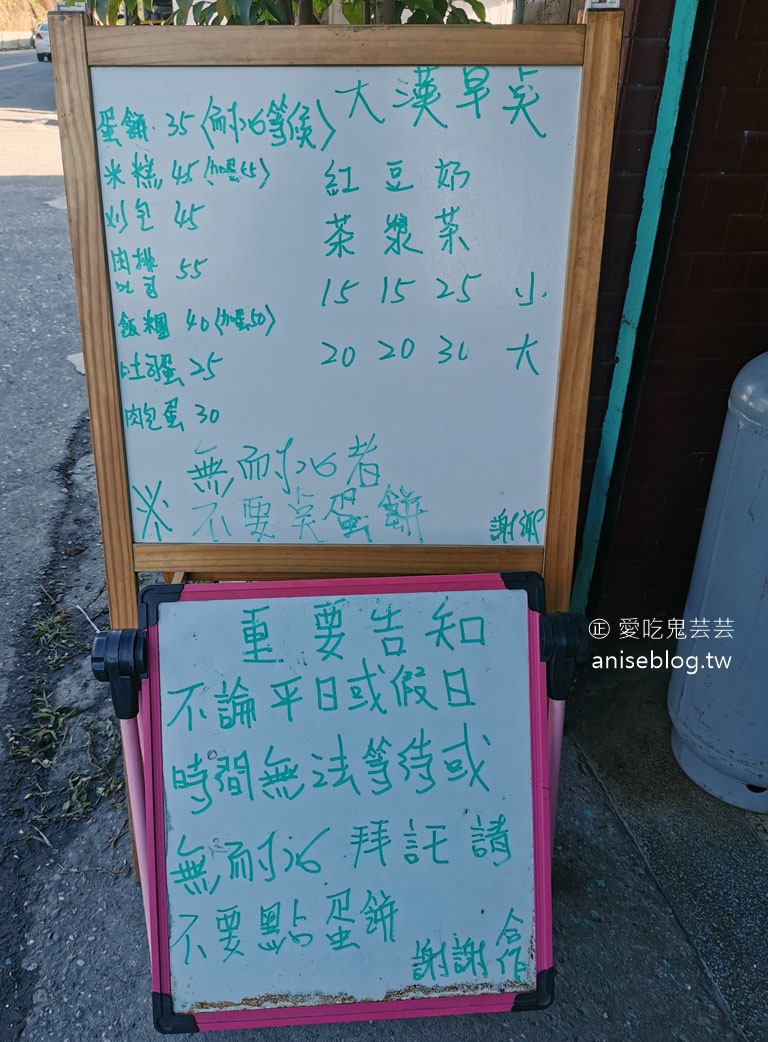 大漢早点
蛋餅 35 (耐心等候)
米糕 45 (加蛋55)
刈包 45
肉排吐司 55
飯糰 40 (加蛋50)
吐司蛋 25
肉包蛋 30
紅茶 豆漿 奶茶
15 15 25 小
20 20 30 大
無耐心者
※ 不要点蛋餅 謝謝
重要告知
不論平日或假日
時間無法等待或
無耐心 拜託請
不要點蛋餅
謝謝合作
愛吃鬼芸芸
aniseblog.tw